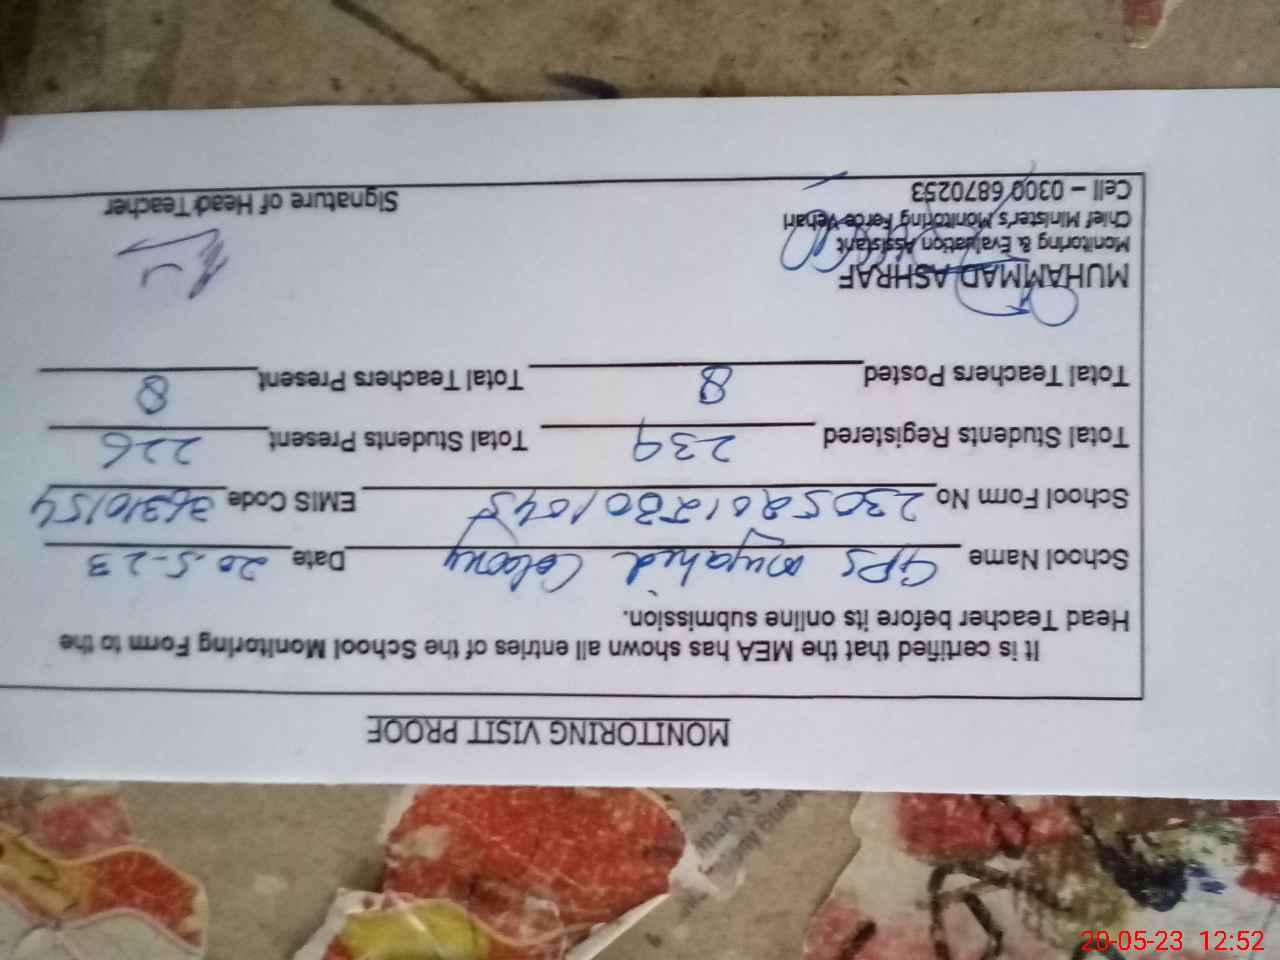 MONITORING VISIT PROOF
It is certified that the MEA has shown all entries of the School Monitoring Form to the
Head Teacher before its online submission.
School Name GPS Mujahid Colony Date 20.5-23
School Form No 23052012001045 EMIS Code 36310154
Total Students Registered 239 Total Students Present 226
Total Teachers Posted 8 Total Teachers Present 8
MUHAMMAD ASHRAF
Monitoring & Evaluation Assistant
Chief Minister's Monitoring Force Vehari
Cell – 0300 6870253
Signature of Head Teacher
20-05-23 12:52